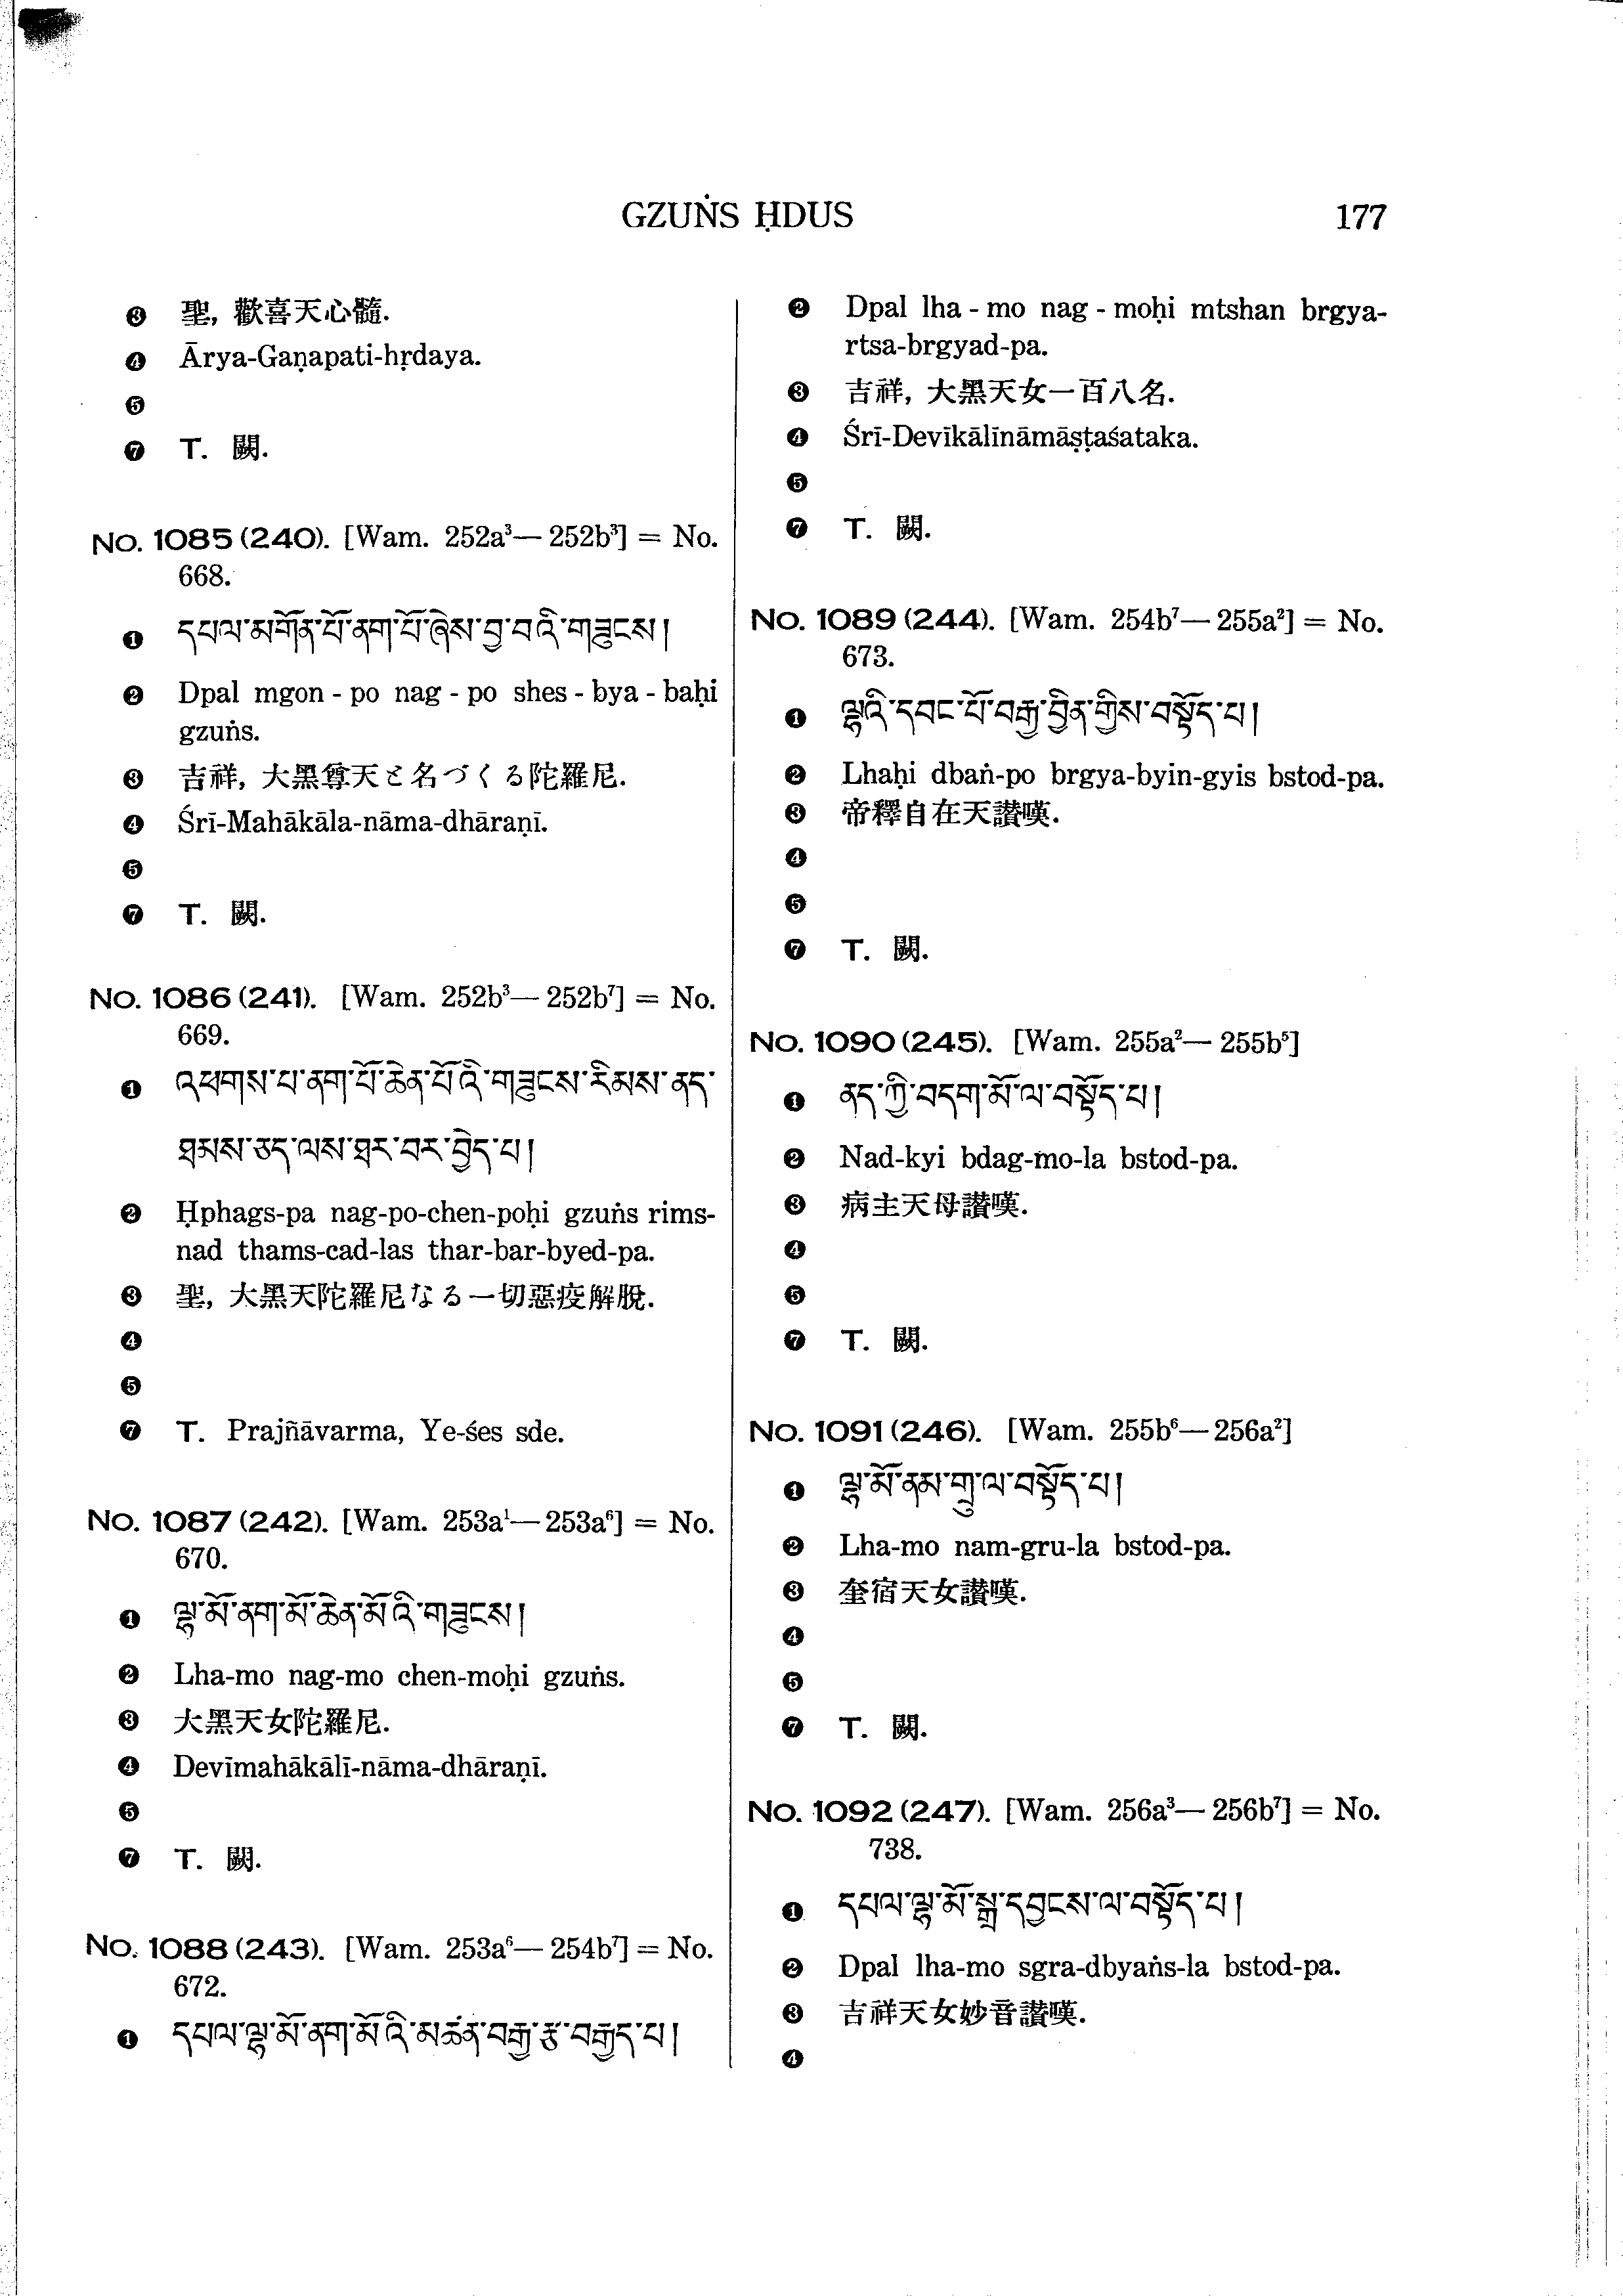 GZUṄS ḤDUS 177
❸ 聖, 歡喜天心髓.
❹ Ārya-Gaṇapati-hṛdaya.
❺
❼ T. 闕.
No. 1085 (240). [Wam. 252a³— 252b³] = No.
668.
❶ དཔལ་མགོན་པོ་ནག་པོ་ཞེས་བྱ་བའི་གཟུངས།
❷ Dpal mgon - po nag - po shes - bya - baḥi
gzuṅs.
❸ 吉祥, 大黑尊天と名づくる陀羅尼.
❹ Śrī-Mahākāla-nāma-dhāraṇī.
❺
❼ T. 闕.
No. 1086 (241). [Wam. 252b³— 252b⁷] = No.
669.
❶ འཕགས་པ་ནག་པོ་ཆེན་པོའི་གཟུངས་རིམས་ནད་
ཐམས་ཅད་ལས་ཐར་བར་བྱེད་པ།
❷ Ḥphags-pa nag-po-chen-poḥi gzuṅs rims-
nad thams-cad-las thar-bar-byed-pa.
❸ 聖, 大黑天陀羅尼なる一切惡疫解脫.
❹
❺
❼ T. Prajñāvarma, Ye-śes sde.
No. 1087 (242). [Wam. 253a¹— 253a⁶] = No.
670.
❶ ལྷ་མོ་ནག་མོ་ཆེན་མོའི་གཟུངས།
❷ Lha-mo nag-mo chen-moḥi gzuṅs.
❸ 大黑天女陀羅尼.
❹ Devīmahākālī-nāma-dhāraṇī.
❺
❼ T. 闕.
No. 1088 (243). [Wam. 253a⁶— 254b⁷] = No.
672.
❶ དཔལ་ལྷ་མོ་ནག་མོའི་མཚན་བརྒྱ་རྩ་བརྒྱད་པ།
❷ Dpal lha - mo nag - moḥi mtshan brgya-
rtsa-brgyad-pa.
❸ 吉祥, 大黑天女一百八名.
❹ Śrī-Devīkālīnāmāṣṭaśataka.
❺
❼ T. 闕.
No. 1089 (244). [Wam. 254b⁷— 255a²] = No.
673.
❶ ལྷའི་དབང་པོ་བརྒྱ་བྱིན་གྱིས་བསྟོད་པ།
❷ Lhaḥi dbaṅ-po brgya-byin-gyis bstod-pa.
❸ 帝釋自在天讚嘆.
❹
❺
❼ T. 闕.
No. 1090 (245). [Wam. 255a²— 255b⁵]
❶ ནད་ཀྱི་བདག་མོ་ལ་བསྟོད་པ།
❷ Nad-kyi bdag-mo-la bstod-pa.
❸ 病主天母讚嘆.
❹
❺
❼ T. 闕.
No. 1091 (246). [Wam. 255b⁶— 256a²]
❶ ལྷ་མོ་ནམ་གྲུ་ལ་བསྟོད་པ།
❷ Lha-mo nam-gru-la bstod-pa.
❸ 奎宿天女讚嘆.
❹
❺
❼ T. 闕.
No. 1092 (247). [Wam. 256a³— 256b⁷] = No.
738.
❶ དཔལ་ལྷ་མོ་སྒྲ་དབྱངས་ལ་བསྟོད་པ།
❷ Dpal lha-mo sgra-dbyaṅs-la bstod-pa.
❸ 吉祥天女妙音讚嘆.
❹